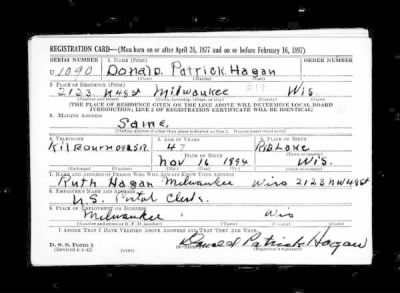 REGISTRATION CARD—(Men born on or after April 28, 1877 and on or before February 16, 1897)
SERIAL NUMBER 1. NAME (Print) ORDER NUMBER
U 1090 Donald Patrick Hagan
(First) (Middle) (Last)
2. PLACE OF RESIDENCE (Print)
2123 N 49 St Milwaukee Wis.
(Number and street) (Town, township, village, or city) (County) (State)
[THE PLACE OF RESIDENCE GIVEN ON THE LINE ABOVE WILL DETERMINE LOCAL BOARD
JURISDICTION; LINE 2 OF REGISTRATION CERTIFICATE WILL BE IDENTICAL]
3. MAILING ADDRESS
Same
[Mailing address if other than place indicated on line 2. If same insert word same]
4. TELEPHONE 5. AGE IN YEARS 6. PLACE OF BIRTH
Kilbourn 47 Rib Lake
DATE OF BIRTH
Nov 16 1894 Wis.
(Exchange) (Number) (Mo.) (Day) (Yr.) (State or country)
7. NAME AND ADDRESS OF PERSON WHO WILL ALWAYS KNOW YOUR ADDRESS
Ruth Hagan Milwaukee Wis 2123 N 49 St
8. EMPLOYER'S NAME AND ADDRESS
U.S. Postal Clerk.
9. PLACE OF EMPLOYMENT OR BUSINESS
Milwaukee Wis
(Number and street or R. F. D. number) (Town) (County) (State)
I AFFIRM THAT I HAVE VERIFIED ABOVE ANSWERS AND THAT THEY ARE TRUE.
D. S. S. Form 1
(Revised 4-1-42) (over) Donald Patrick Hagan